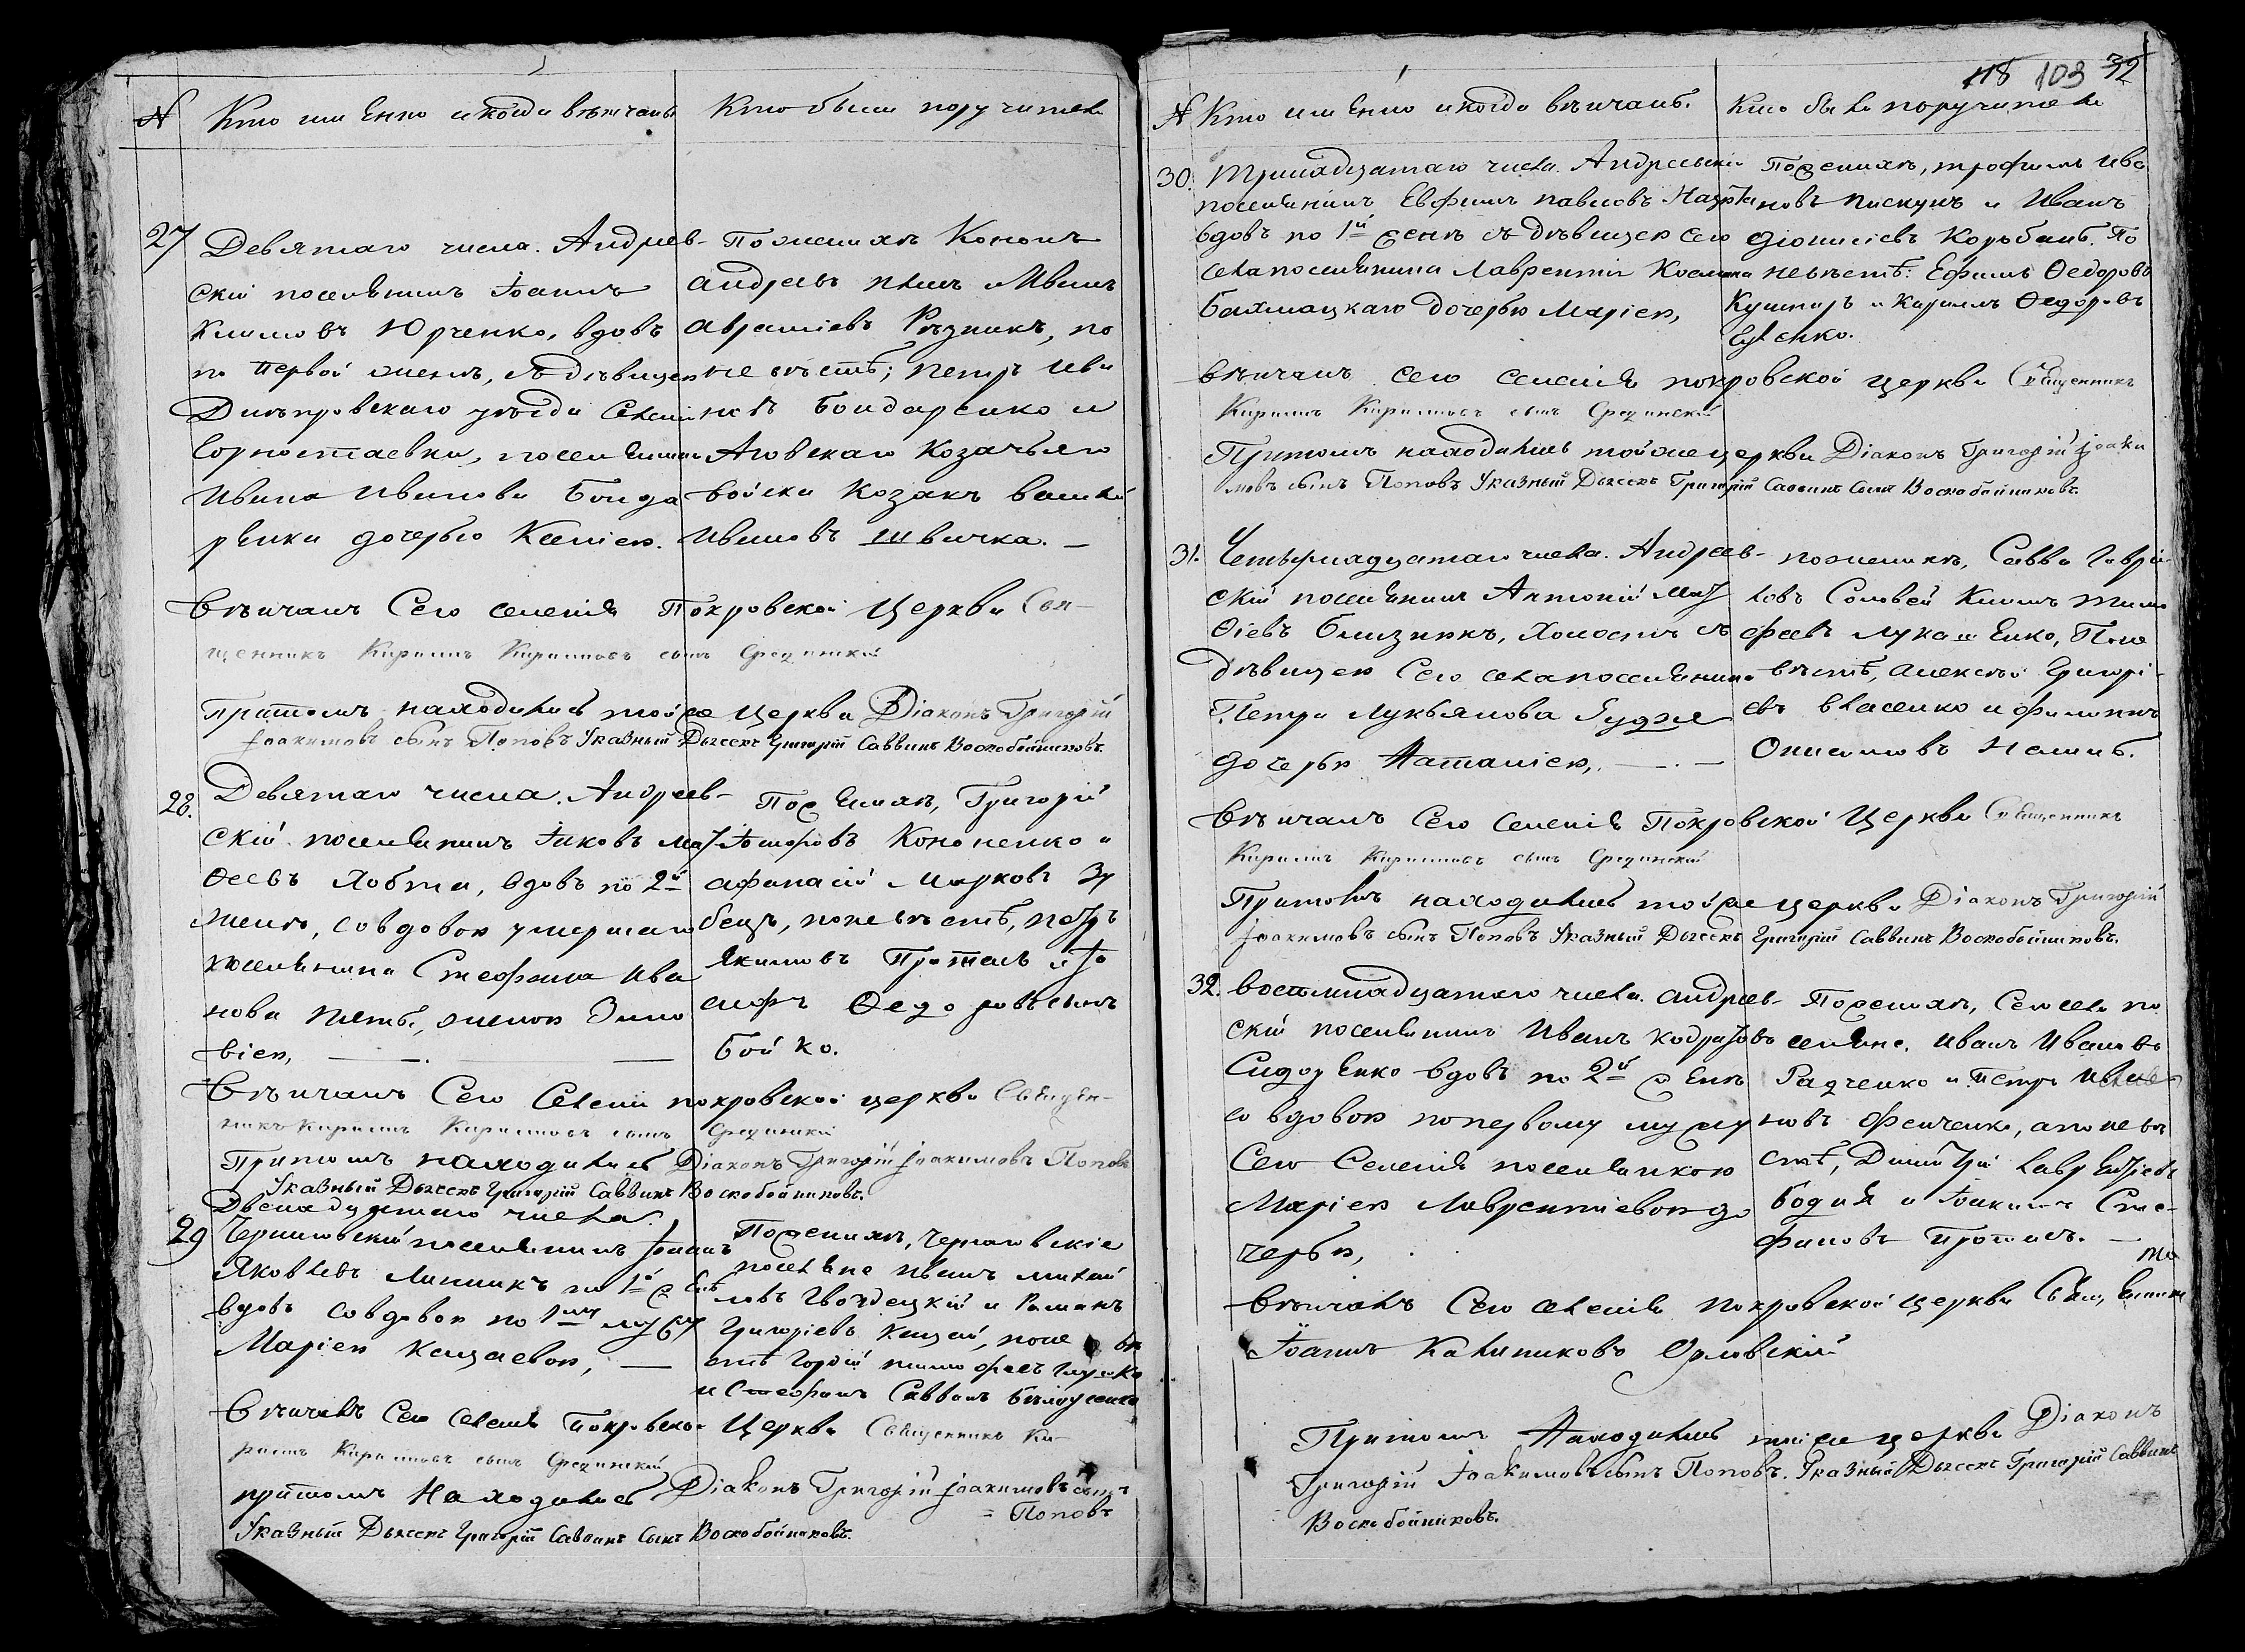 № Кто именно и когда вѣнчаны
Кто были поручители
27
Девятаго числа. Андреев-
скій поселянинъ Іоаннъ
Климовъ Юрченко, вдовъ
по первой женѣ, съ дѣвицею
Днѣпровскаго уѣзда Селенія
Горностаевки, поселянина
Ивана Иванова Бонда
ренки дочерью Ксеніею.
По женихѣ Кононъ
Андреевъ и Иванъ
Авраміевъ Рѣзникъ, по
невѣстѣ; Петръ Ива
новъ Бондаренко и
Азовскаго Козачьяго
войска Козакъ Василій
Ивановъ Швичка. —
Вѣнчалъ Сего селенія Покровской Церкви Свя-
щенникъ Кириллъ Кирилловъ сынъ Срединскій
Притомъ находились тойже Церкви Діаконъ Григорій
Іоакимовъ сынъ Поповъ Указный Дьячекъ Григорій Саввинъ Воскобойниковъ.
28.
Девятаго числа. Андреев-
скій поселянинъ Іаковъ Мат
ѳеевъ Лобта, вдовъ по 2й
женѣ, со вдовою умершаго
поселянина Стефана Ива
нова женою Зино
віею, —
По женихѣ, Григорій
Кононенко и
Афанасій Марковъ Зу
бецъ, по невѣстѣ, Петръ
Якимовъ Протасъ и Іо
сифъ Ѳедоровъ сынъ
Бойко.
Вѣнчалъ Сего Селенія покровской церкви Священ-
никъ Кириллъ Кирилловъ сынъ Срединскій
Притомъ находились Діаконъ Григорій Іоакимовъ Поповъ
Указный Дьячекъ Григорій Саввинъ Воскобойниковъ.
29
Двенадцатаго числа.
Черниговскій поселянинъ Іоаннъ
Яковлевъ Линникъ по 1й женѣ
вдовъ со вдовою по 1му мужу
Маріею Кащаевою, —
По женихѣ, Черниговскіе
поселяне Иванъ Михай
ловъ Гвоздецкій и Романъ
Григоріевъ Кащай, по не вѣ
стѣ Гордій Тимофеевъ Глушко
и Стефанъ Саввинъ Бѣлоусенко
Вѣнчалъ Сего Селенія Покровской Церкви Священникъ Ки-
риллъ Кирилловъ сынъ Срединскій
притомъ Находились Діаконъ Григорій Іоакимовъ сынъ
= Поповъ
Указный Дьячекъ Григорій Саввинъ Сынъ Воскобойниковъ.
118 103 32
№ Кто именно и когда вѣнчанъ.
Кто были поручители
30.
Тринадцатаго числа. Андреевскій
поселянинъ Евфимъ Павловъ
вдовъ по 1й женѣ съ дѣвицею сего
села поселянина Лаврентія Космина
Бахмацкаго дочерью Маріею,
По женихѣ, Трофимъ Ива
новъ Пискунъ и Иванъ
Діонисіевъ Корбанъ. По
невѣстѣ: Ефимъ Ѳедоровъ
Кушниръ и Кириллъ Ѳедоровъ
Вѣнчалъ сего селенія покровской церкви Священникъ
Кириллъ Кирилловъ сынъ Срединскій
Притомъ находились тойже церкви Діаконъ Григорій Іоаки
мовъ сынъ Поповъ Указный Дьячекъ Григорій Саввинъ Сынъ Воскобойниковъ.
31.
Четырнадцатаго числа. Андреев-
скій поселянинъ Антоній Мат
ѳіевъ Близнюкъ, Холостъ съ
дѣвицею Сего села поселянина
Петра Лукьянова Гуджа
дочерью Наталіею, —
по женихѣ, Савва Гаврі
ловъ Соловей Климъ Тимо
феевъ Лукашенко, По не
вѣстѣ, Алексѣй Григорі-
евъ Власенко и Филиппъ
Онисимовъ
Вѣнчалъ Сего Селенія Покровской Церкви Священникъ
Кириллъ Кирилловъ сынъ Срединскій
Притомъ находились тойже церкви Діаконъ Григорій
Іоакимовъ сынъ Поповъ Указный Дьячекъ Григорій Саввинъ Воскобойниковъ.
32.
Восемнадцатаго числа. Андреев-
скій поселянинъ Иванъ Кодратовъ
Сидоренко вдовъ по 2й женѣ
со вдовою по первому мужу
Сего Селенія поселянкою
Маріею Лаврентіевою до
черью,
По женихѣ, Сего села по
селяне, Иванъ Ивановъ
Радченко и Петръ Ива
новъ Фенченко, а по невѣ
стѣ, Димитрій Лаврентіевъ
Бодня и Іоакимъ Сте-
фановъ Протасъ. —
Вѣнчалъ Сего селенія покровской церкви Священникъ
Іоаннъ Калиниковъ Орловскій
Притомъ Находились тойже церкви Діаконъ
Григорій Іоакимовъ сынъ Поповъ. Указный Дьячекъ Григорій Саввинъ
Воскобойниковъ.